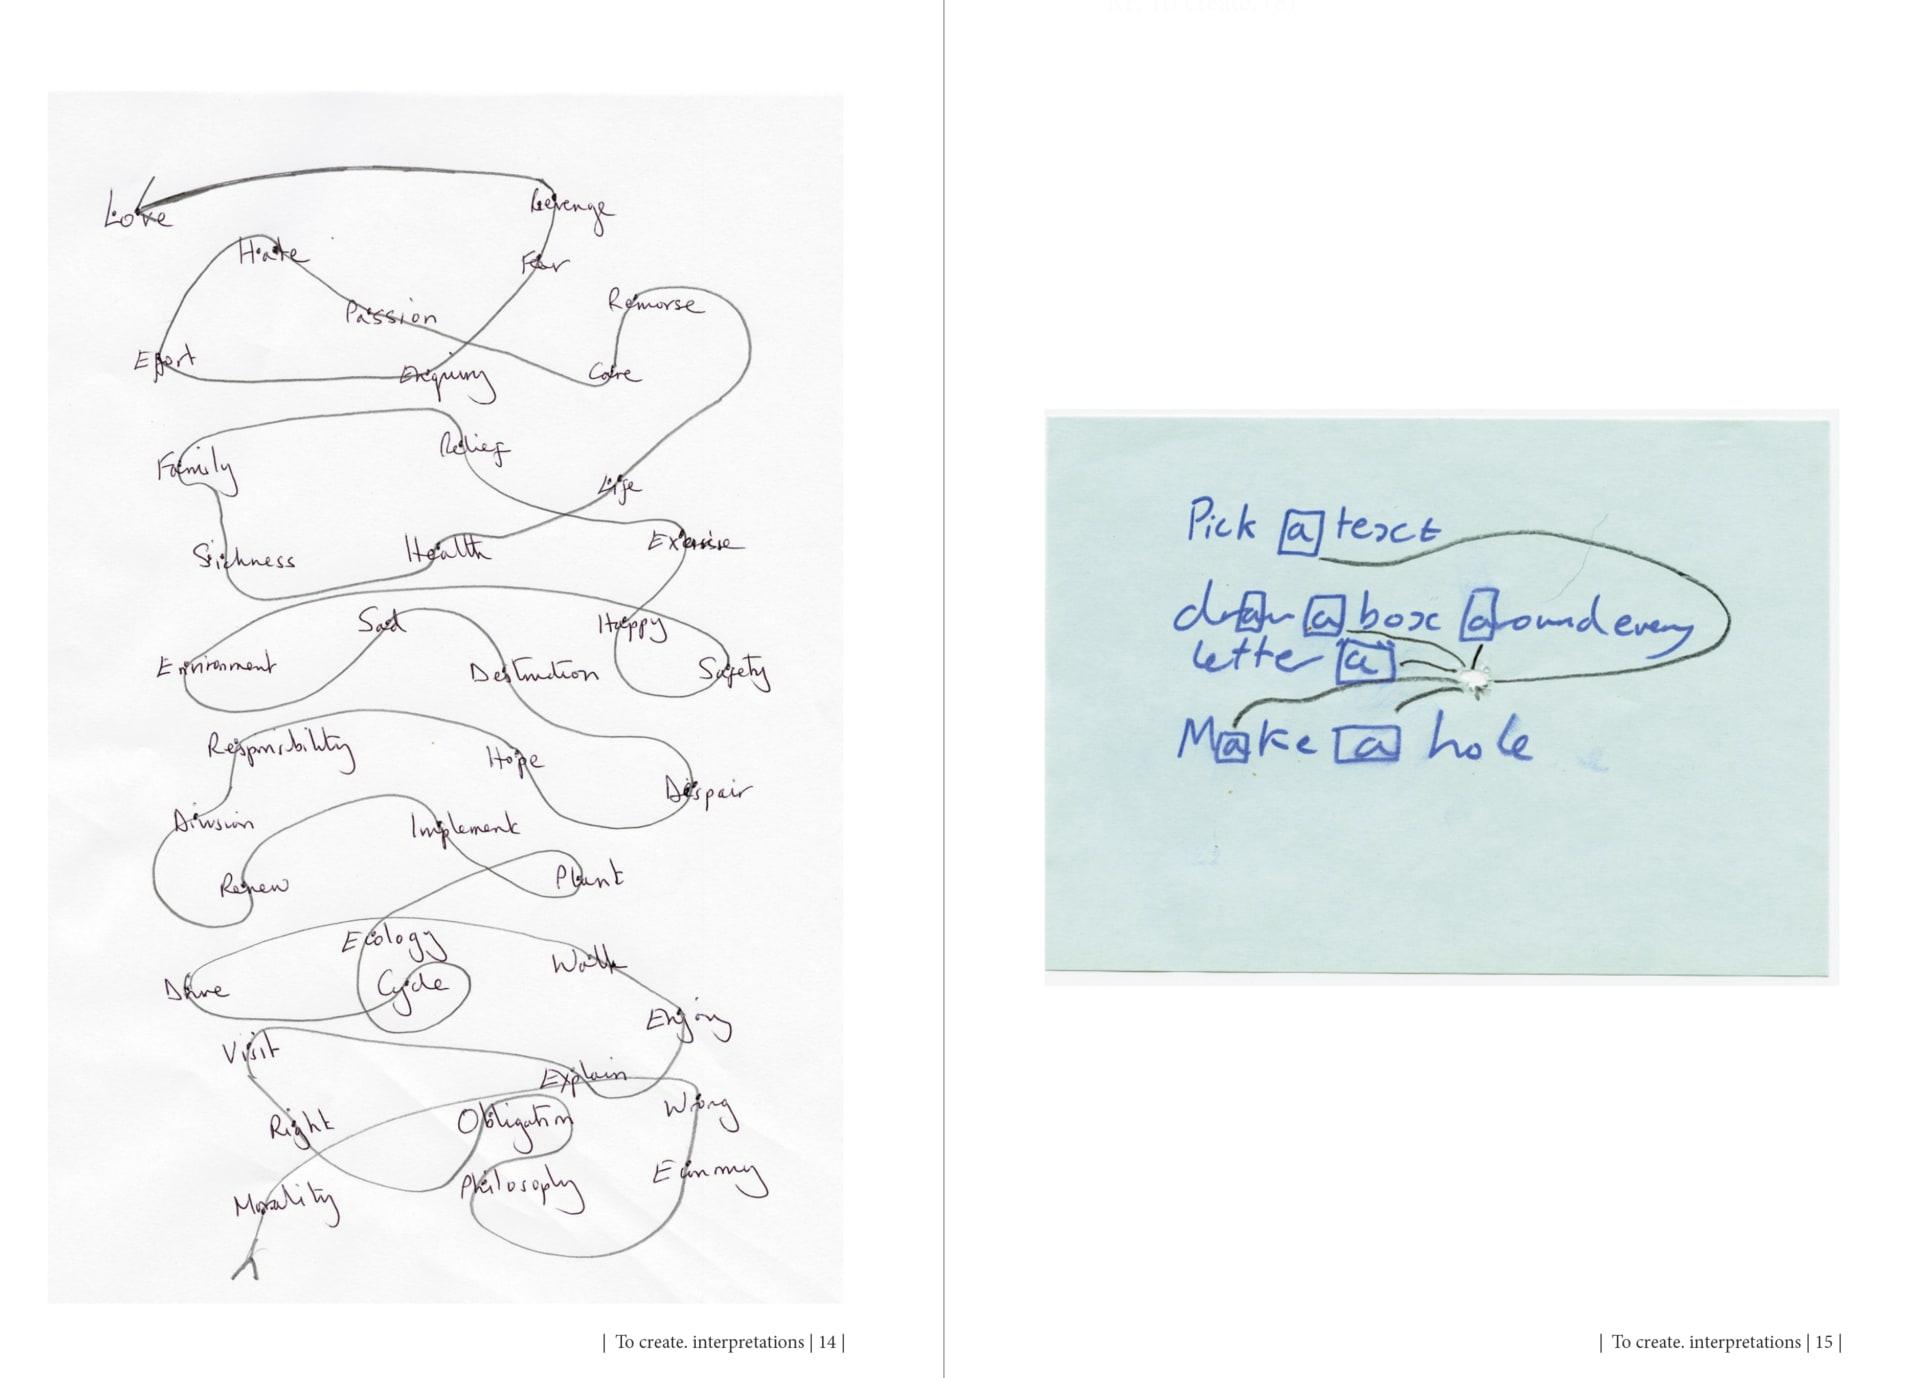 Love
Revenge
Hate
Fear
Remorse
Passion
Effort
Enquiry
Care
Relief
Family
Life
Exercise
Sickness
Health
Sad
Happy
Environment
Destruction
Safety
Responsibility
Hope
Despair
Division
Implement
Renew
Plant
Ecology
Walk
Drive
Cycle
Enjoy
Visit
Explain
Wrong
Right
Obligation
Economy
Philosophy
Morality
| To create. interpretations | 14 |
Pick a text
draw a box around every
letter a
Make a hole
| To create. interpretations | 15 |